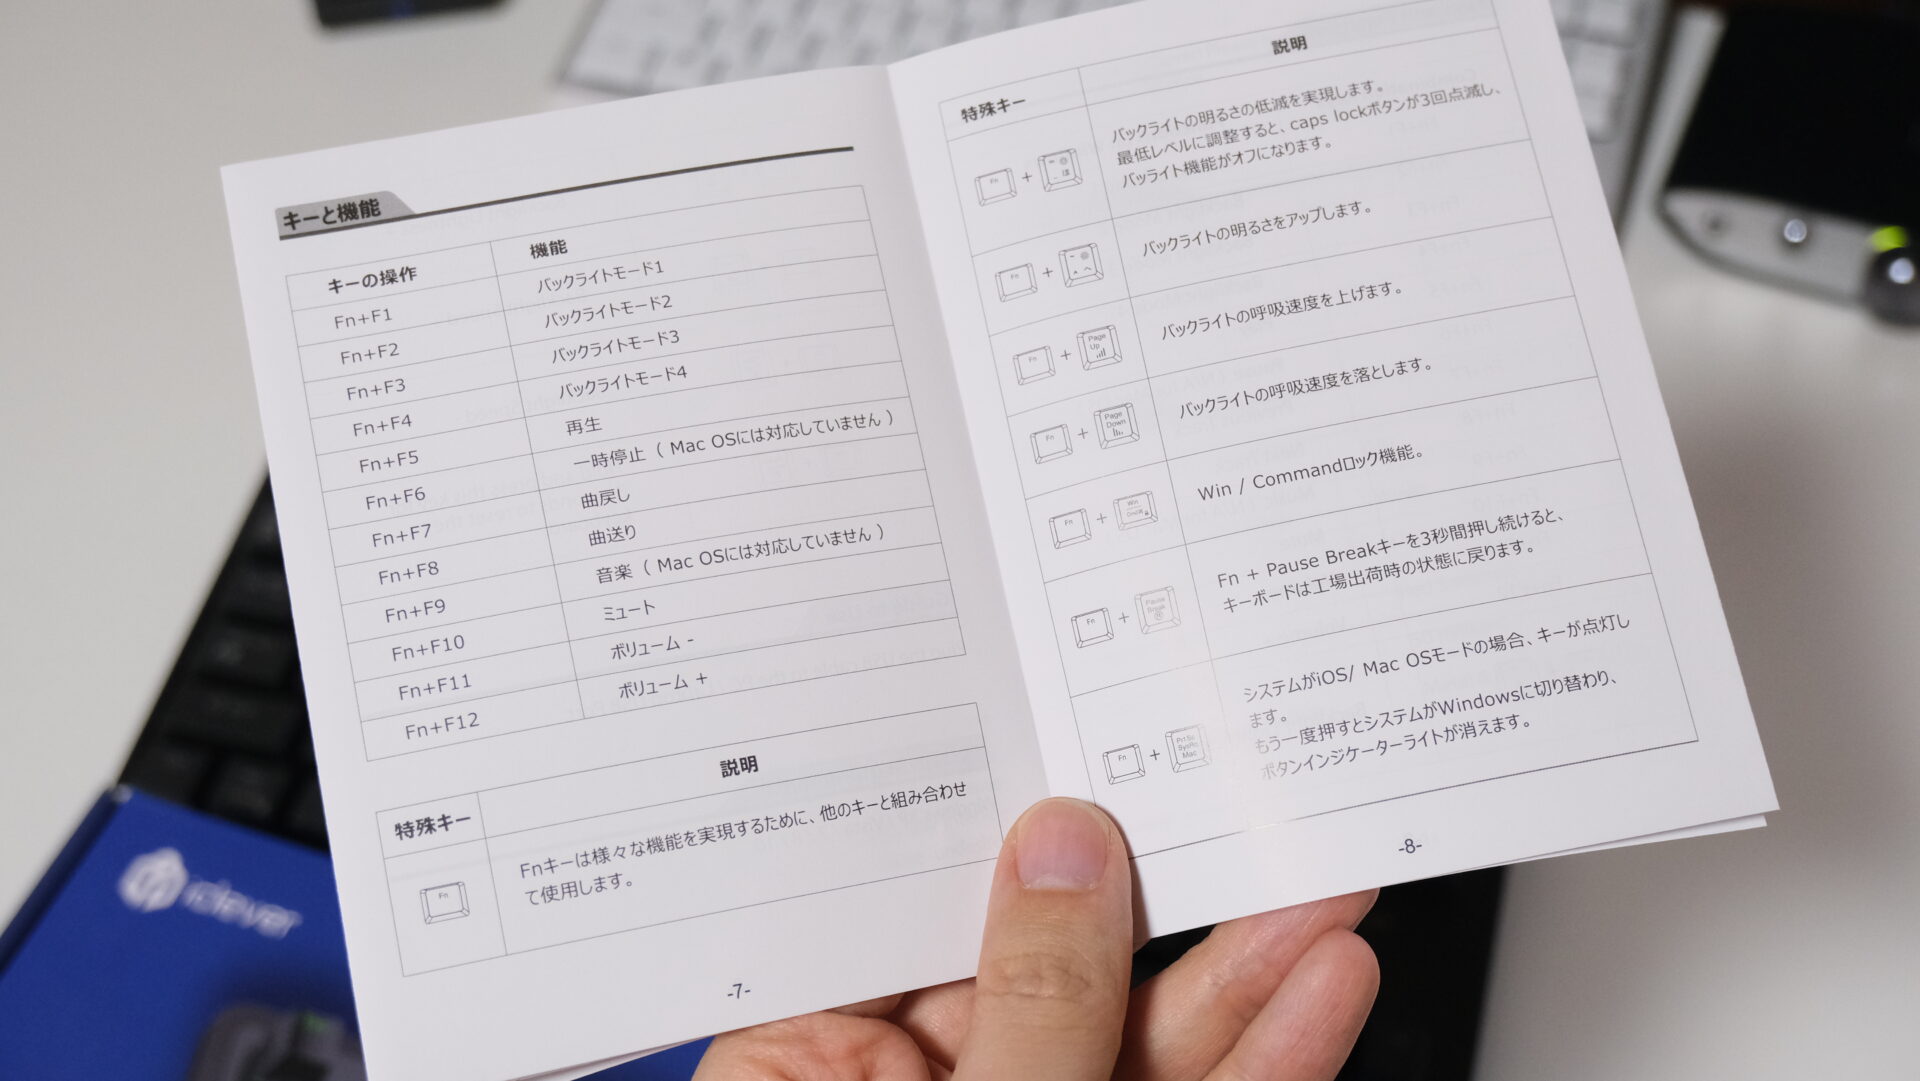 キーと機能
キーの操作 機能
Fn+F1 バックライトモード1
Fn+F2 バックライトモード2
Fn+F3 バックライトモード3
Fn+F4 バックライトモード4
Fn+F5 再生
Fn+F6 一時停止 ( Mac OSには対応していません )
Fn+F7 曲戻し
Fn+F8 曲送り
Fn+F9 音楽 ( Mac OSには対応していません )
Fn+F10 ミュート
Fn+F11 ボリューム -
Fn+F12 ボリューム +
特殊キー 説明
Fn
Fnキーは様々な機能を実現するために、他のキーと組み合わせ
て使用します。
-7-
特殊キー 説明
Fn +
バックライトの明るさの低減を実現します。
最低レベルに調整すると、caps lockボタンが3回点滅し、
バッライト機能がオフになります。
Fn +
バックライトの明るさをアップします。
Fn + Page Up
バックライトの呼吸速度を上げます。
Fn + Page Down
バックライトの呼吸速度を落とします。
Fn + Win
Win / Commandロック機能。
Fn + Pause Break
Fn + Pause Breakキーを3秒間押し続けると、
キーボードは工場出荷時の状態に戻ります。
Fn + PrtSc SysRq Mac
システムがiOS/ Mac OSモードの場合、キーが点灯し
ます。
もう一度押すとシステムがWindowsに切り替わり、
ボタンインジケーターライトが消えます。
-8-
iclever